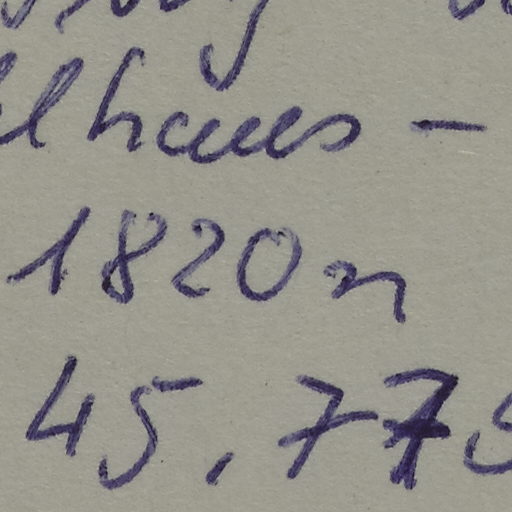 lhaus –
1820 m
45,77